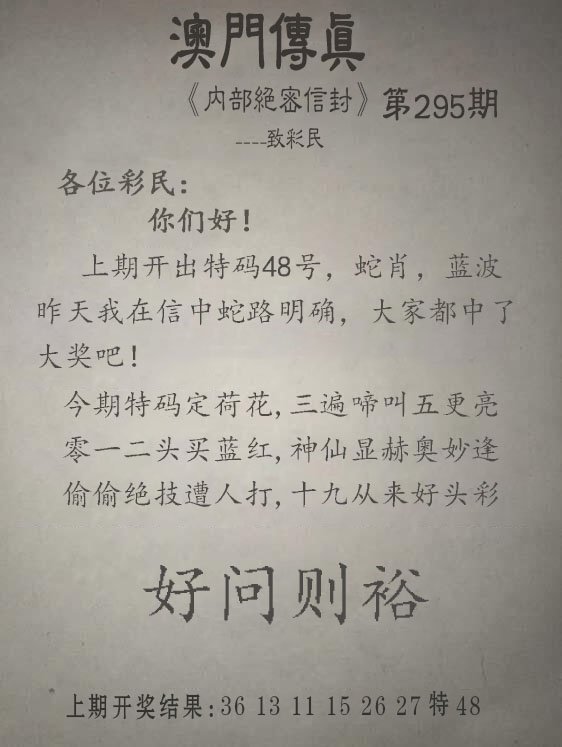 澳門傳眞
《内部絕密信封》第295期
----致彩民
各位彩民：
你们好！
上期开出特码48号，蛇肖，蓝波
昨天我在信中蛇路明确，大家都中了
大奖吧！
今期特码定荷花,三遍啼叫五更亮
零一二头买蓝红,神仙显赫奥妙逢
偷偷绝技遭人打,十九从来好头彩
好问则裕
上期开奖结果:36 13 11 15 26 27 特 48